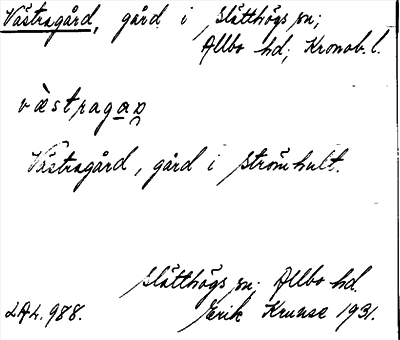 Västragård, gård i Slätthögs sn;
Allbo hd; Kronob. l.
Västragård, gård i Strömhult.
Slätthögs sn; Allbo hd.
LAL. 988. Erik Kruuse 1931.